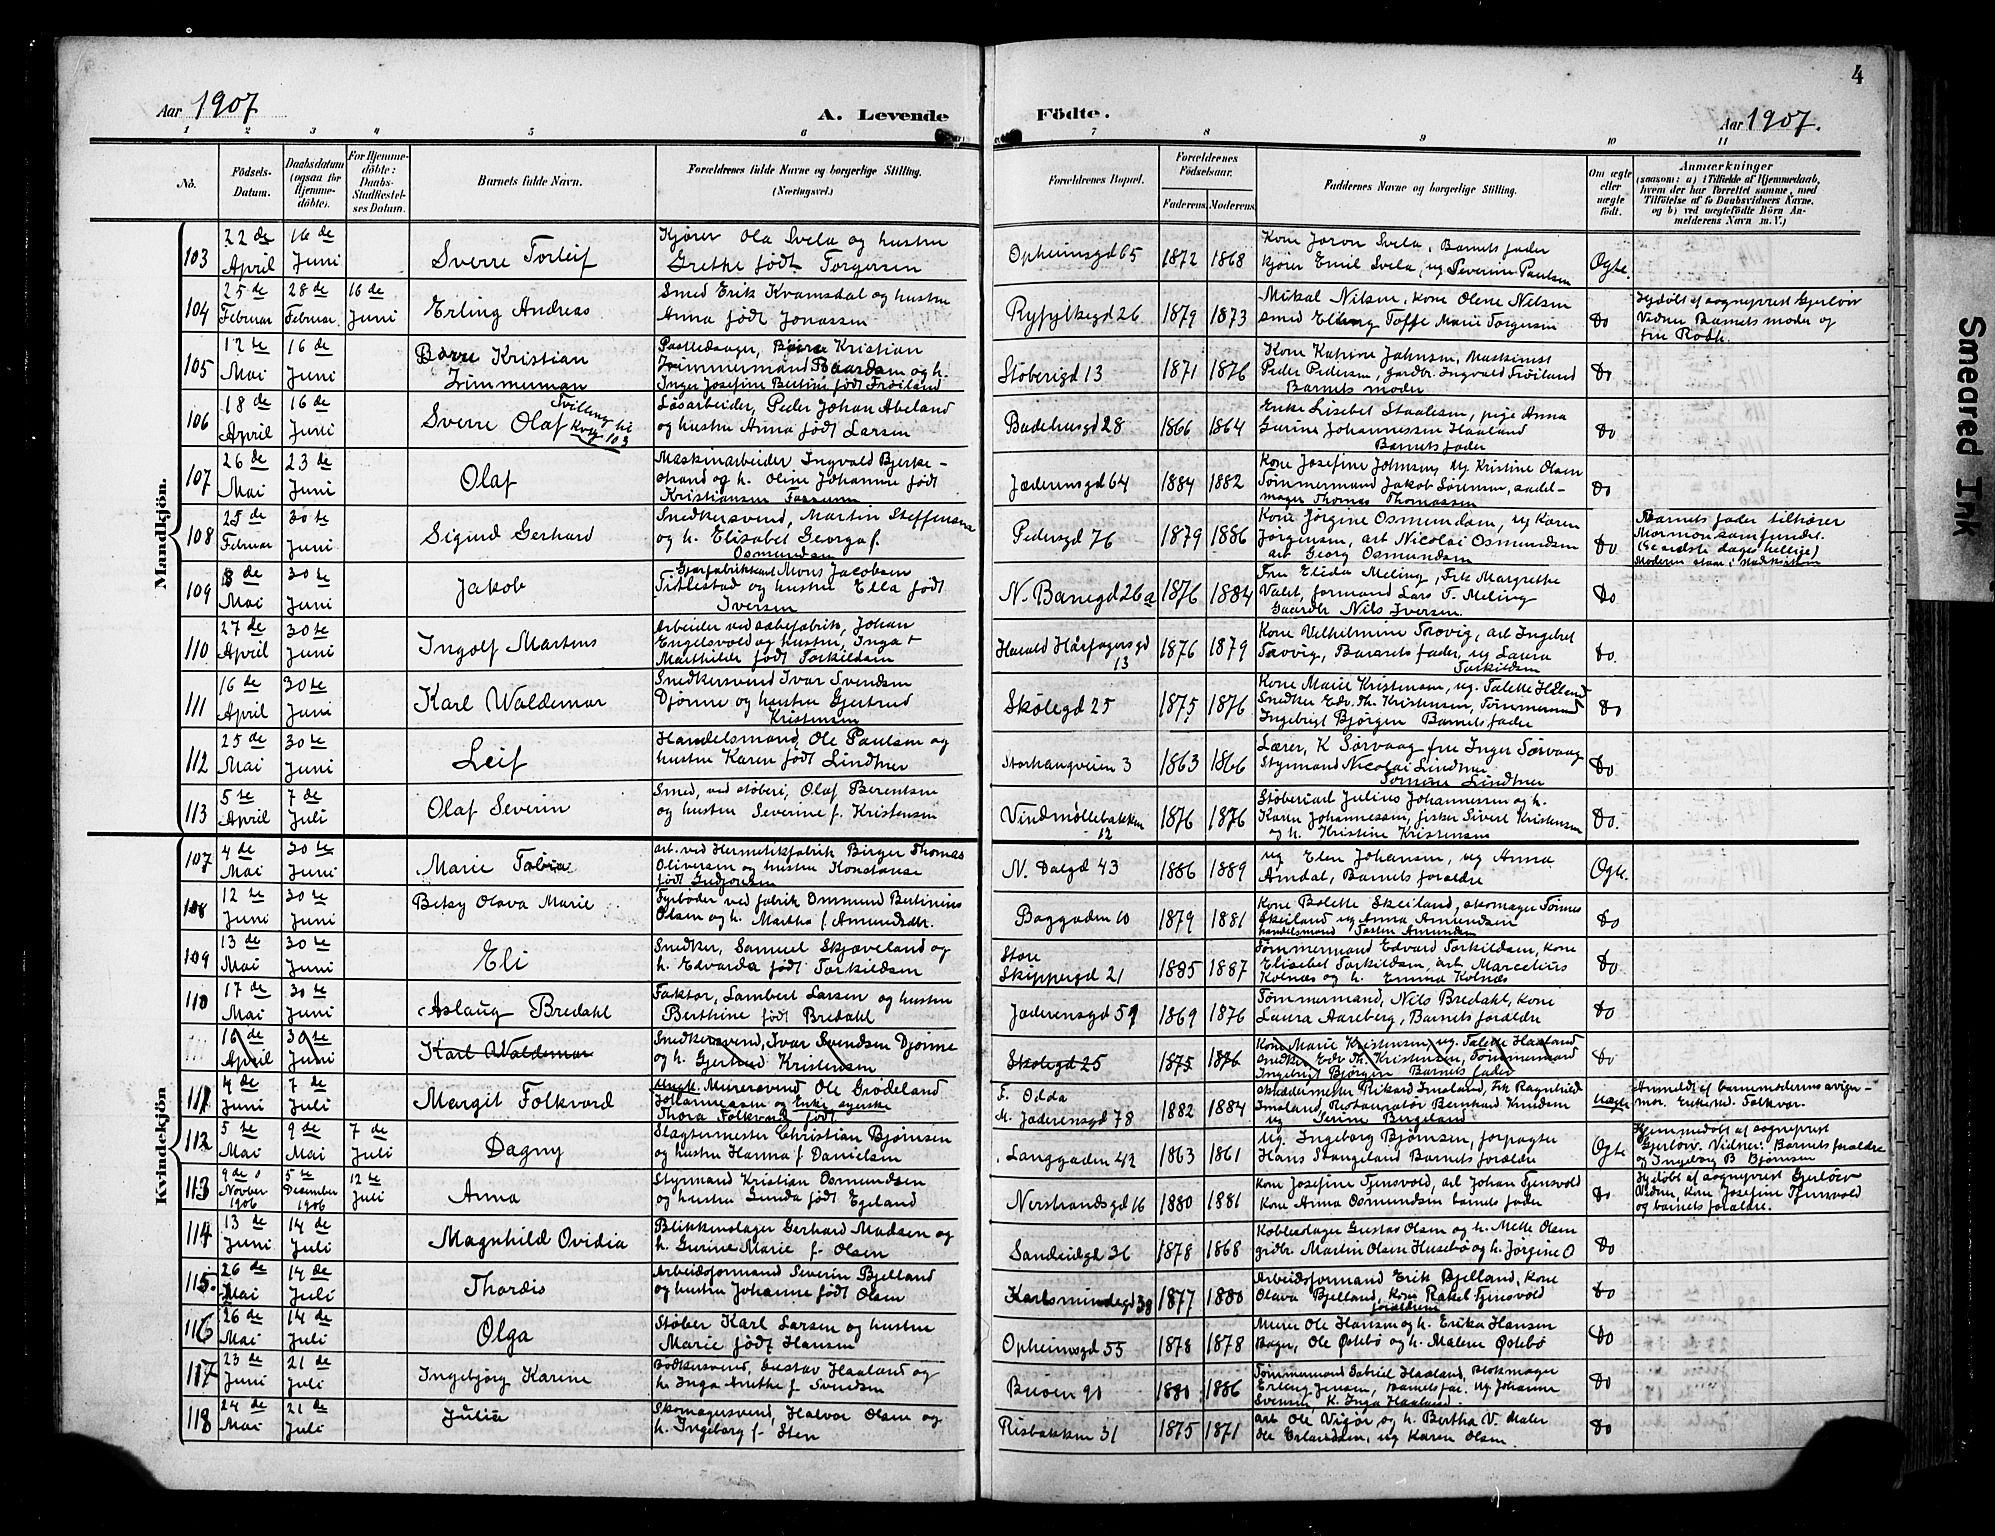 4
Aar 1907
A. Levende
Fødte.
Aar 1907.
1 2 3 4 5 6 7 8 9 10 11
No.
Fødsels-Datum.
Daabsdatum (ogsaa for Hjemmedøbte).
For Hjemmedøbte: Daabs-Stadfæstelses Datum.
Barnets fulde Navn.
Forældrenes fulde Navne og borgerlige Stilling. (Næringsvei.)
Forældrenes Bopæl.
Forældrenes Fødselsaar.
Faderens. Moderens.
Faddernes Navne og borgerlige Stilling.
Om ægte eller uægte født.
Anmærkninger
(saasom: a) i Tilfælde af Hjemmedaab, hvem der har forrettet samme, med Tilføielse af to Daabsvidners Navne, og b) ved uægtefødte Børn Anmelderens Navn m. V.)
Mandkjøn.
103 22de April 16de Juni Sverre Torleif Kjører Ola Svela og hustru Grethe født Torgersen Opheimsgd 65 1872 1868 Kone Joron Svela, Barnets fader kjører Emil Svela, ug Severine Paulsen Ægte
104 25de Februar 28de Februar 16de Juni Erling Andreas Smed Erik Kvamsdal og hustru Anna født Jonassen Ryfylkegd 26 1879 1873 Mikal Nilsen, Kone Olene Nilsen smed Elling Toffe Marie Torgersen Do Hjdøbt af sogneprest Gjerløw Vidner Barnets moder og fru Rødh.
105 12te Mai 16de Juni Børre Kristian Zimmerman Postledsager, Børre Kristian Zimmermand Baardsen og h. Inger Josefine Bertine født Frøiland Støberigd 13 1871 1876 Kone Katrine Johnsen, Maskinist Peder Pedersen, gardbr. Ingvald Frøiland Barnets moder Do
106 18de April 16de Juni Sverre Olaf Tvilling til Kvk 103 Løsarbeider, Peder Johan Abeland og hustru Anna født Larsen Badehusgd 28 1866 1864 Enke Lisebet Staalesen, pige Anna Gurine Johannessen Haaland Barnets fader Do
107 26de Mai 23de Juni Olaf Maskinarbeider Ingvald Bjerkestrand og h. Oline Johanne født Kristiansen Fossum Jæderensgd 64 1884 1882 Kone Josefine Johnsen, ug Kristine Olsen Tømmermand Jakob Sørensen, sadelmager Thomas Thomassen Do
108 25de Februar 30te Juni Sigurd Gerhard Snedkersvend, Martin Steffensen og h. Elisabet Georga f. Osmundsen Pedersgd 76 1879 1886 Kone Jørgine Osmundsen, ug Karen Jørgensen, arb Nicolai Osmundsen arb Georg Osmundsen Do Barnets fader tilhører Mormonsamfundet. (Se sidste dages hellige) Moderen staar i statskirken
109 8de Mai 30te Juni Jakob Mons Jacobsen Titlestad og hustru Ella født Iversen N. Banegd 26a 1876 1884 Fru Elida Meling, Frk Margrethe Valet, formand Lars T. Meling Gaardbr Nils Iversen. Do
110 27de April 30te Juni Ingolf Martens Arbeider ved sæbefabrik, Johan Engelsvold og hustru, Inga Marthilde født Torkildsen Harald Hårfagersgd 13 1876 1879 Kone Vilhelmine Trovig, arb Ingebret Trovig, Barnets fader, ug Laura Torkildsen Do.
111 16de April 30te Juni Karl Waldemar Snedkersvend Ivar Svendsen Djønne og hustru Gjertrud Kristensen Skolegd 25 1875 1876 Kone Marie Kristensen, ug. Talette Håland Snedker Edv. Th. Kristensen, Tømmermand Ingebrigt Bjørgen Barnets fader Do
112 25de Mai 30te Juni Leif Handelsmand, Ole Paulsen og hustru Karen født Lindtner Storhaugveien 3 1863 1866 Lærer, K Sørvaag fru Inger Sørvaag Styrmand Nicolai Lindtner Tomine Lindtner Do
113 5te April 7de Juli Olaf Severin Smed, ved støberi, Olaf Berentsen og hustru Severine f. Kristensen Vindmøllebakken 12 1876 1876 Støberiarb Julius Johannessen og h. Karen Johannessen, fisker Sivert Kristensen og h. Kristine Kristensen Do.
Kvindekjøn
107 4de Mai 30te Juni Marie Tobia arb. ved Hermetikfabrik Birger Thomas Oliversen og hustru Konstanse født Gudjonsen N. Dalgd 43 1886 1889 ug Elen Johansen, ug Anna Arndal, Barnets forældre Ægte.
108 12te Juni 30te Juni Betsy Olava Marie Fyrbøder ved fabrik Ommund Bertinius Olsen og h. Martha f. Amundsdtr. Baggaden 10 1879 1881 Kone Bolette Skeiland, skomager Tønnes Skeiland ug Anna Amundsen handelsmand Tosten Amundsen Do
109 13de Mai 30te Juni Eli Snedker, Samuel Skjæveland og h. Edvarda født Torkildsen Store Skippergd 21 1885 1887 Tømmermand Edvard Torkildsen, Kone Elisebet Torkildsen, arb Marcelius Kolnæs og h. Emma Kolnæs Do
110 17de Mai 30te Juni Aslaug Bredahl Faktor, Lambert Larsen og hustru Berthine født Bredahl Jæderensgd 59 1869 1876 Tømmermand, Nils Bredahl, Kone Laura Aareberg, Barnets forældre Do
16de April 30te Juni Karl Waldemar Snedkersvend, Ivar Svendsen Djønne og h. Gjertrud Kristensen Skolegd 25 1875 1876 Kone Marie Kristensen, ug. Talette Haaland snedker Edv Th. Kristensen, Tømmermand Ingebrigt Bjørgen Barnets fader Do
111 4de Juni 7de Juli Margit Folkvord Ungk. Murersvend Ole Grødeland Johannessen og Enke Thora Folkvord født F. Odda M. Jæderensgd 78 1882 1884 Rikard Imsland, Frk Ragnhild Imsland, Restauratør Bernhard Knudsen ug Serine Birgeland Uægte Anmeldt af barnemoderens svigermor. Enkefrd. Folkvor.
112 5te Mai 9de Mai 7de Juli Dagny Slagtermester Christian Bjørnsen og hustru Hanna f. Danielsen Langgaden 42 1863 1861 Ug. Ingeborg Bjørnsen, forpagter Hans Stangeland Barnets forældre Ægte Hjemmedøbt af sogneprest Gjerløw. Vidner: Barnets forældre og Ingeborg B Bjørnsen
113 9de Novber 1906 5te Desember 1906 12te Juli Anna Styrmand Kristian Osmundsen og hustru Gunda født Egeland Nerstrandsgd 16 1880 1881 Kone Josefine Tjensvold, arb Johan Tjensvold Kone Anna Osmundsen barnets fader Do Hjdøbt af sogneprest Gjerløw Vidner, Kone Josefine Tjensvold og barnets forældre.
114 13de Juni 14de Juli Magnhild Ovidia Blikkenslager Gerhard Madsen og h. Gurine Marie f. Olsen Sandeidgd 36 1878 1868 Kobberslager Gustav Olsen og h. Mette Olsen grdbr Martin Olsen Husebø og h. Jørgine O Do
115 26de Mai 14de Juli Thordis Arbeidsformand Severin Bjelland og hustru Johanne født Olsen Karlsmindegd 38 1877 1880 Arbeidsformand Erik Bjelland, Kone Olava Bjelland, Kone Rakel Tjensvold forældrene Do
116 26de Mai 14de Juli Olga Støber Karl Larsen og hustru Marie født Hansen Opheimsgd 55 1878 1878 Murer Ole Hansen og h. Erika Hansen Bager, Ole Østebø og h. Malene Østebø Do
117 23de Juni 21de Juli Ingebjørg Karine Bødkersvend, Gustav Haaland og h. Inga Anethe f. Svendsen Buøen 90 1880 1886 Tømmermand Gabriel Haaland, Blokmager Erling Jensen, Barnets far. ug Johanne Svensen, K. Inga Haaland. Do
118 24de Mai 21de Juli Julia Skomagersvend, Halvor Olsen og h. Ingeborg f. Sten Risbakken 31 1875 1871 arb Ole Vigør og h. Bertha V. Maler Ole Erlandsen, ug Karen Olsen. Do
Smeared Ink